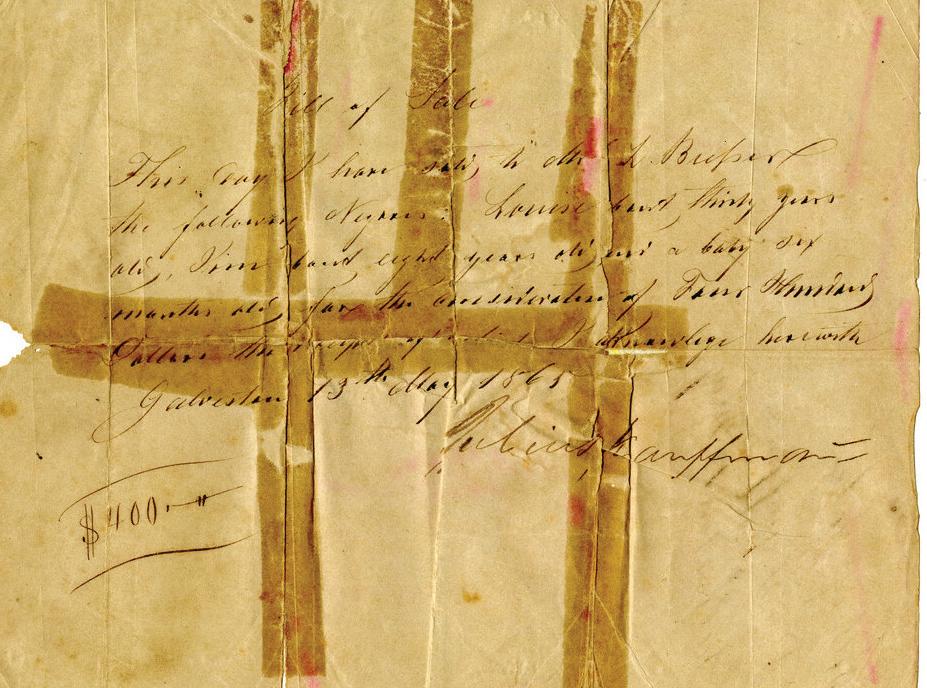 Bill of Sale
This day I have sold to Mr L Beissner
the following Negroes: Louise bout thirty years
old, Jim bout eight years old and a baby six
months old, for the consideration of Four Hundred
Dollars the receipt of which I aknowlege herewith
Galveston 13th May 1865
Julius Kauffman
$400.-"